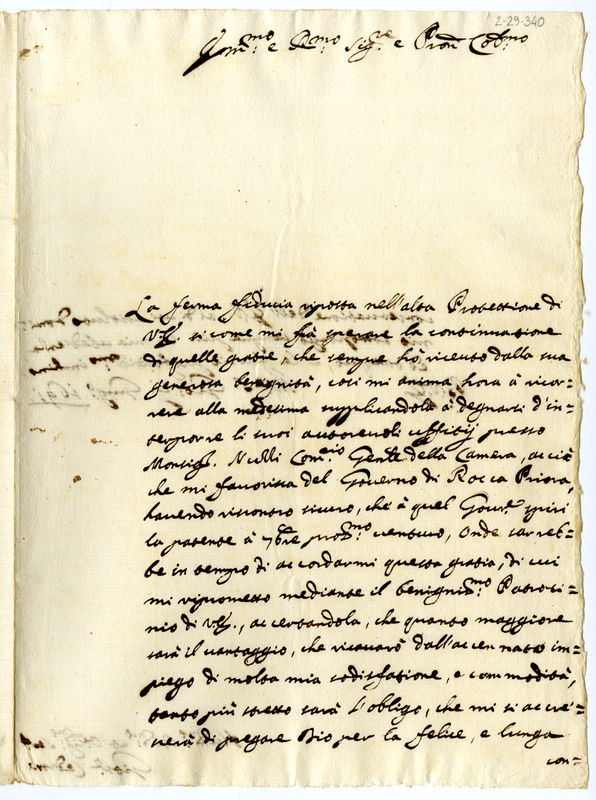 2-29-340
Ill.mo e R.mo Sig.re e Pron Col.mo
La ferma fiducia riposta nell'alta Protettione di
V.S. si come mi fà sperare la continuatione
di quelle gratie, che sempre hò riceuto dalla sua
generosa benignità, cosi mi anima hora à ricor=
rere alla medesima supplicandola à degnarsi d'in=
terporre li suoi autoreuoli uffitij presso
Monsig.r Nulli Com.rio Gen.le della Camera, acciò
che mi fauorisca del Gouerno di Rocca Priora,
hauendo riscontro sicuro, che à quel Gou.re spiri
la patente à 7bre pros.mo venturo, Onde sarreb=
be in tempo di accordarmi questa gratia, di cui
mi riprometto mediante il benignis.mo Patroci=
nio di V.S., accertandola, che quanto maggiore
sarà il vantaggio, che ricauarò dall'accennato im=
piego di molta mia sodisfatione, e commodità,
tanto più stretto sarà l'obligo, che mi si accre=
scerà di pregare Dio per la felice, e lunga
con=